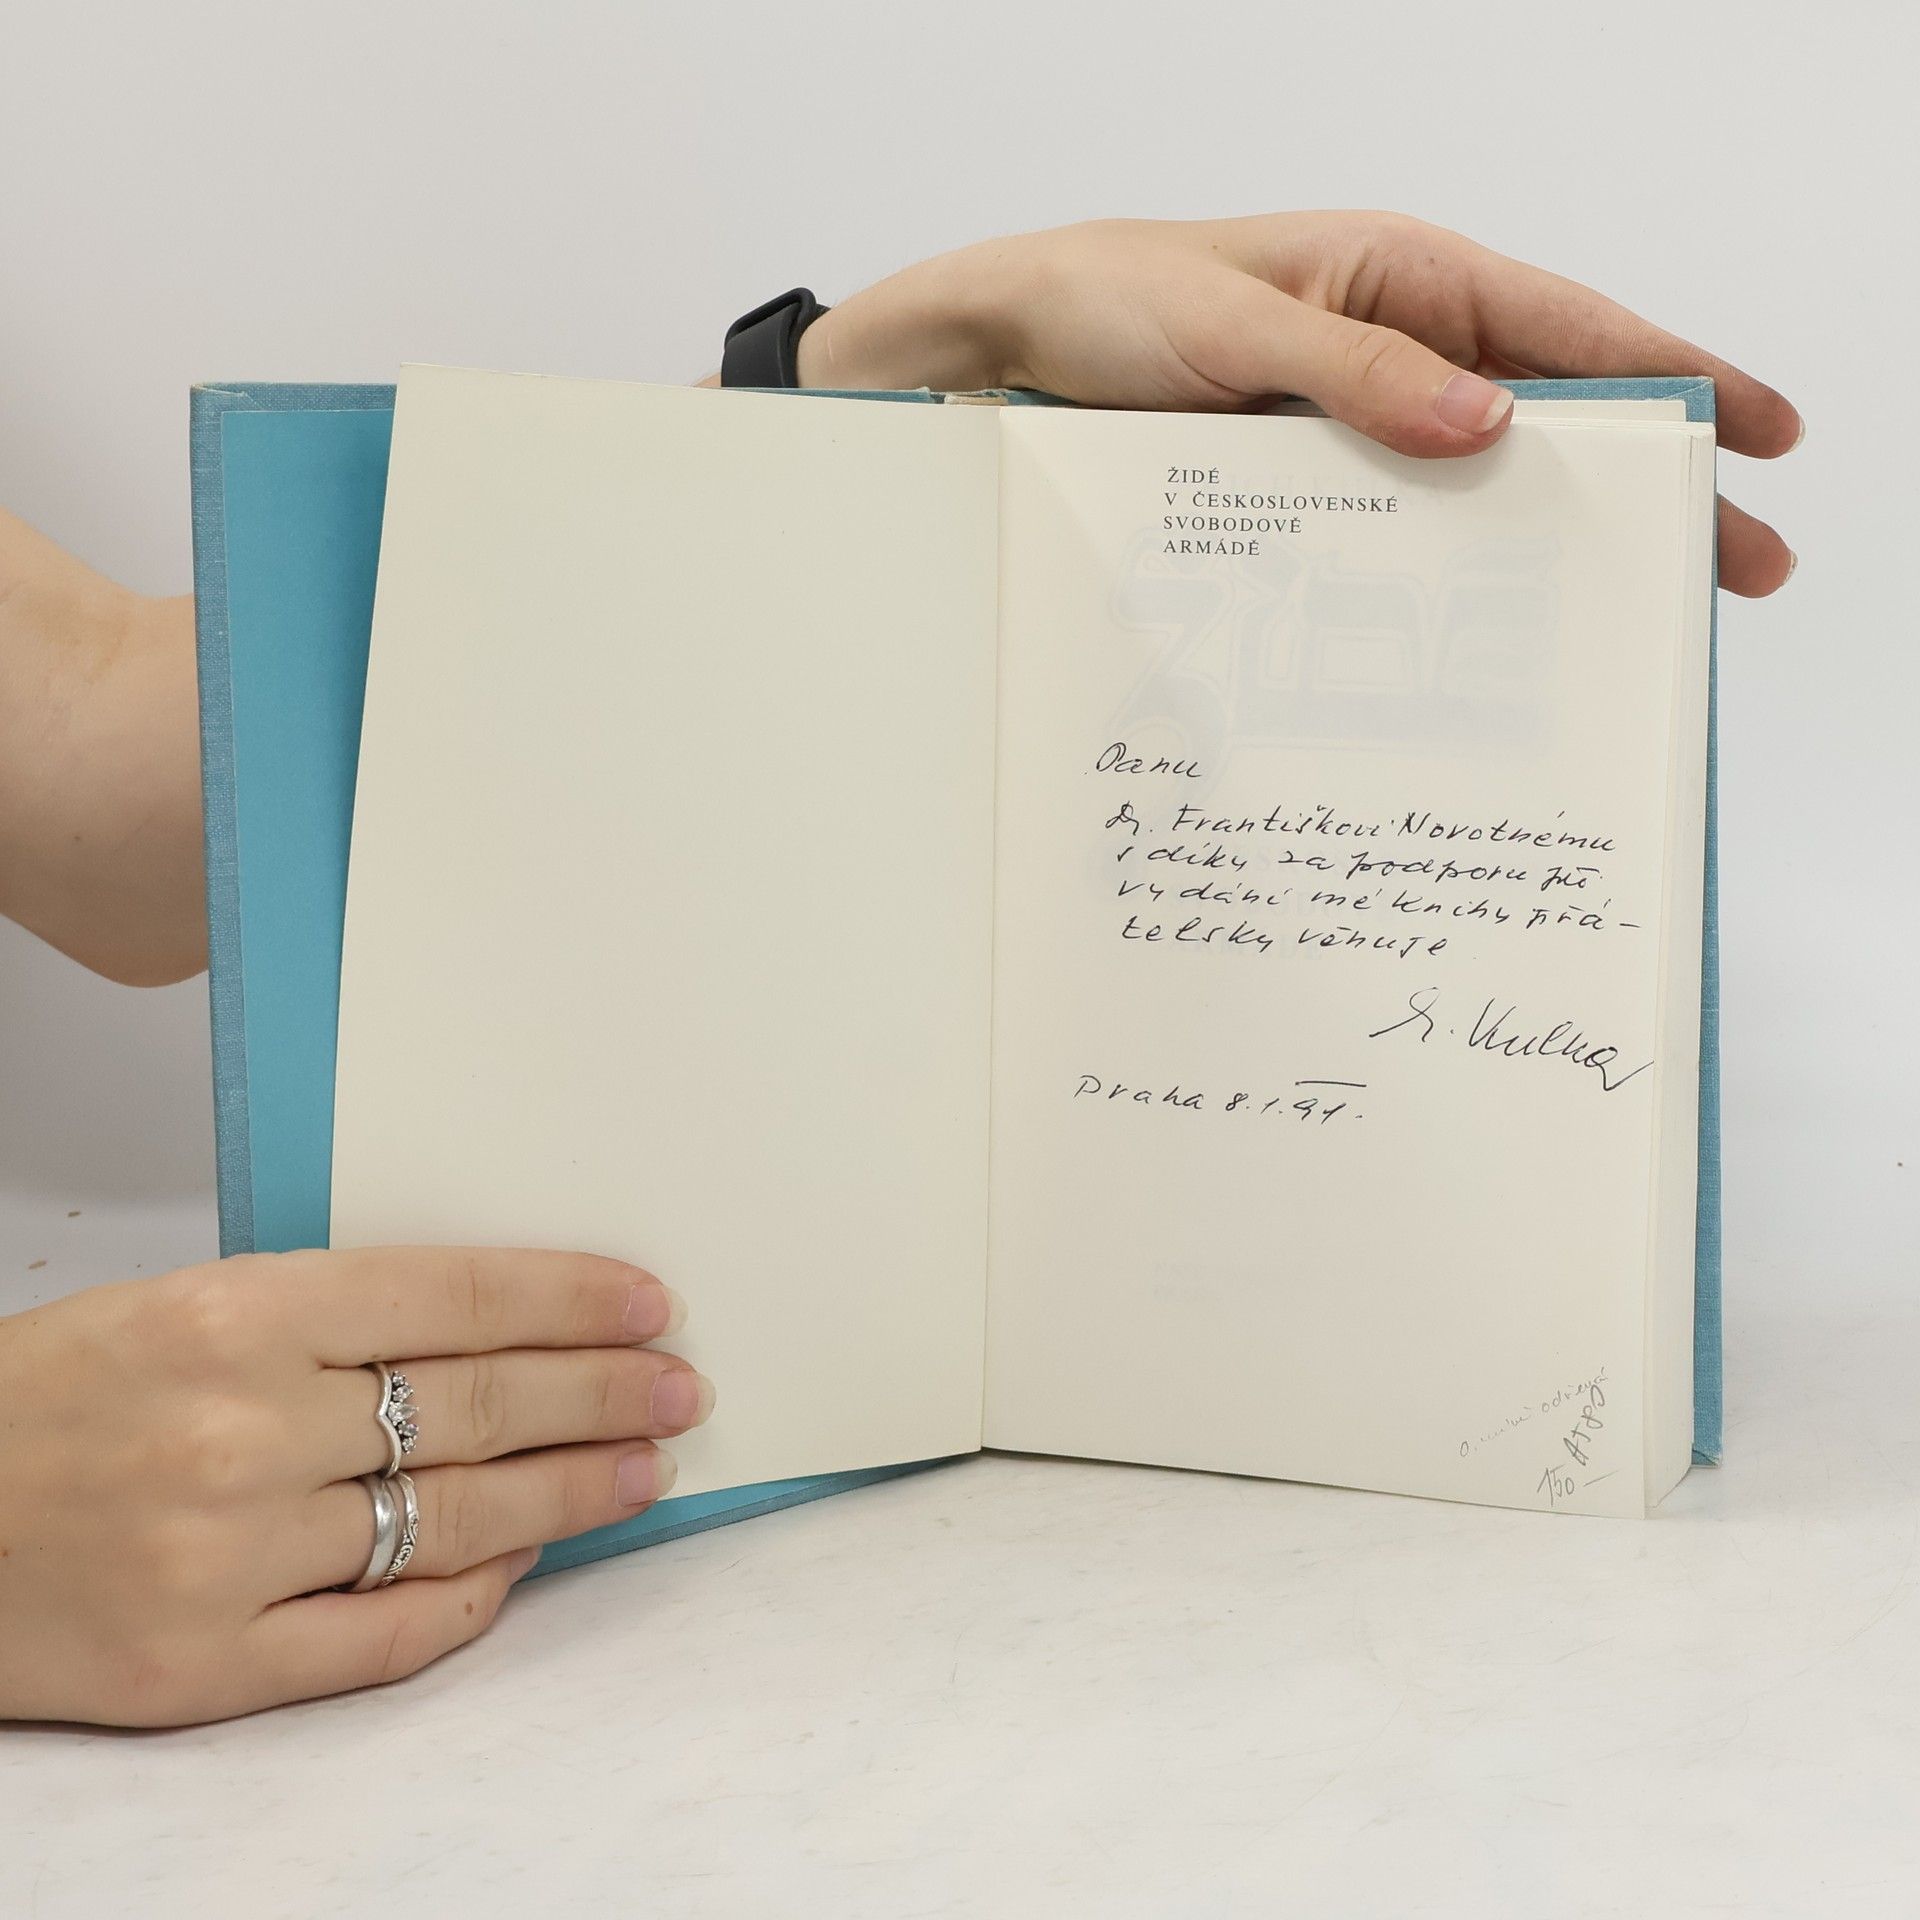 ŽIDÉ
V ČESKOSLOVENSKÉ
SVOBODOVĚ
ARMÁDĚ
Panu
Dr. Františkovi Novotnému
s díky za podporu při
vydání mé knihy přá-
telsky věnuje
E. Kulka
Praha 8.1.91.
150-